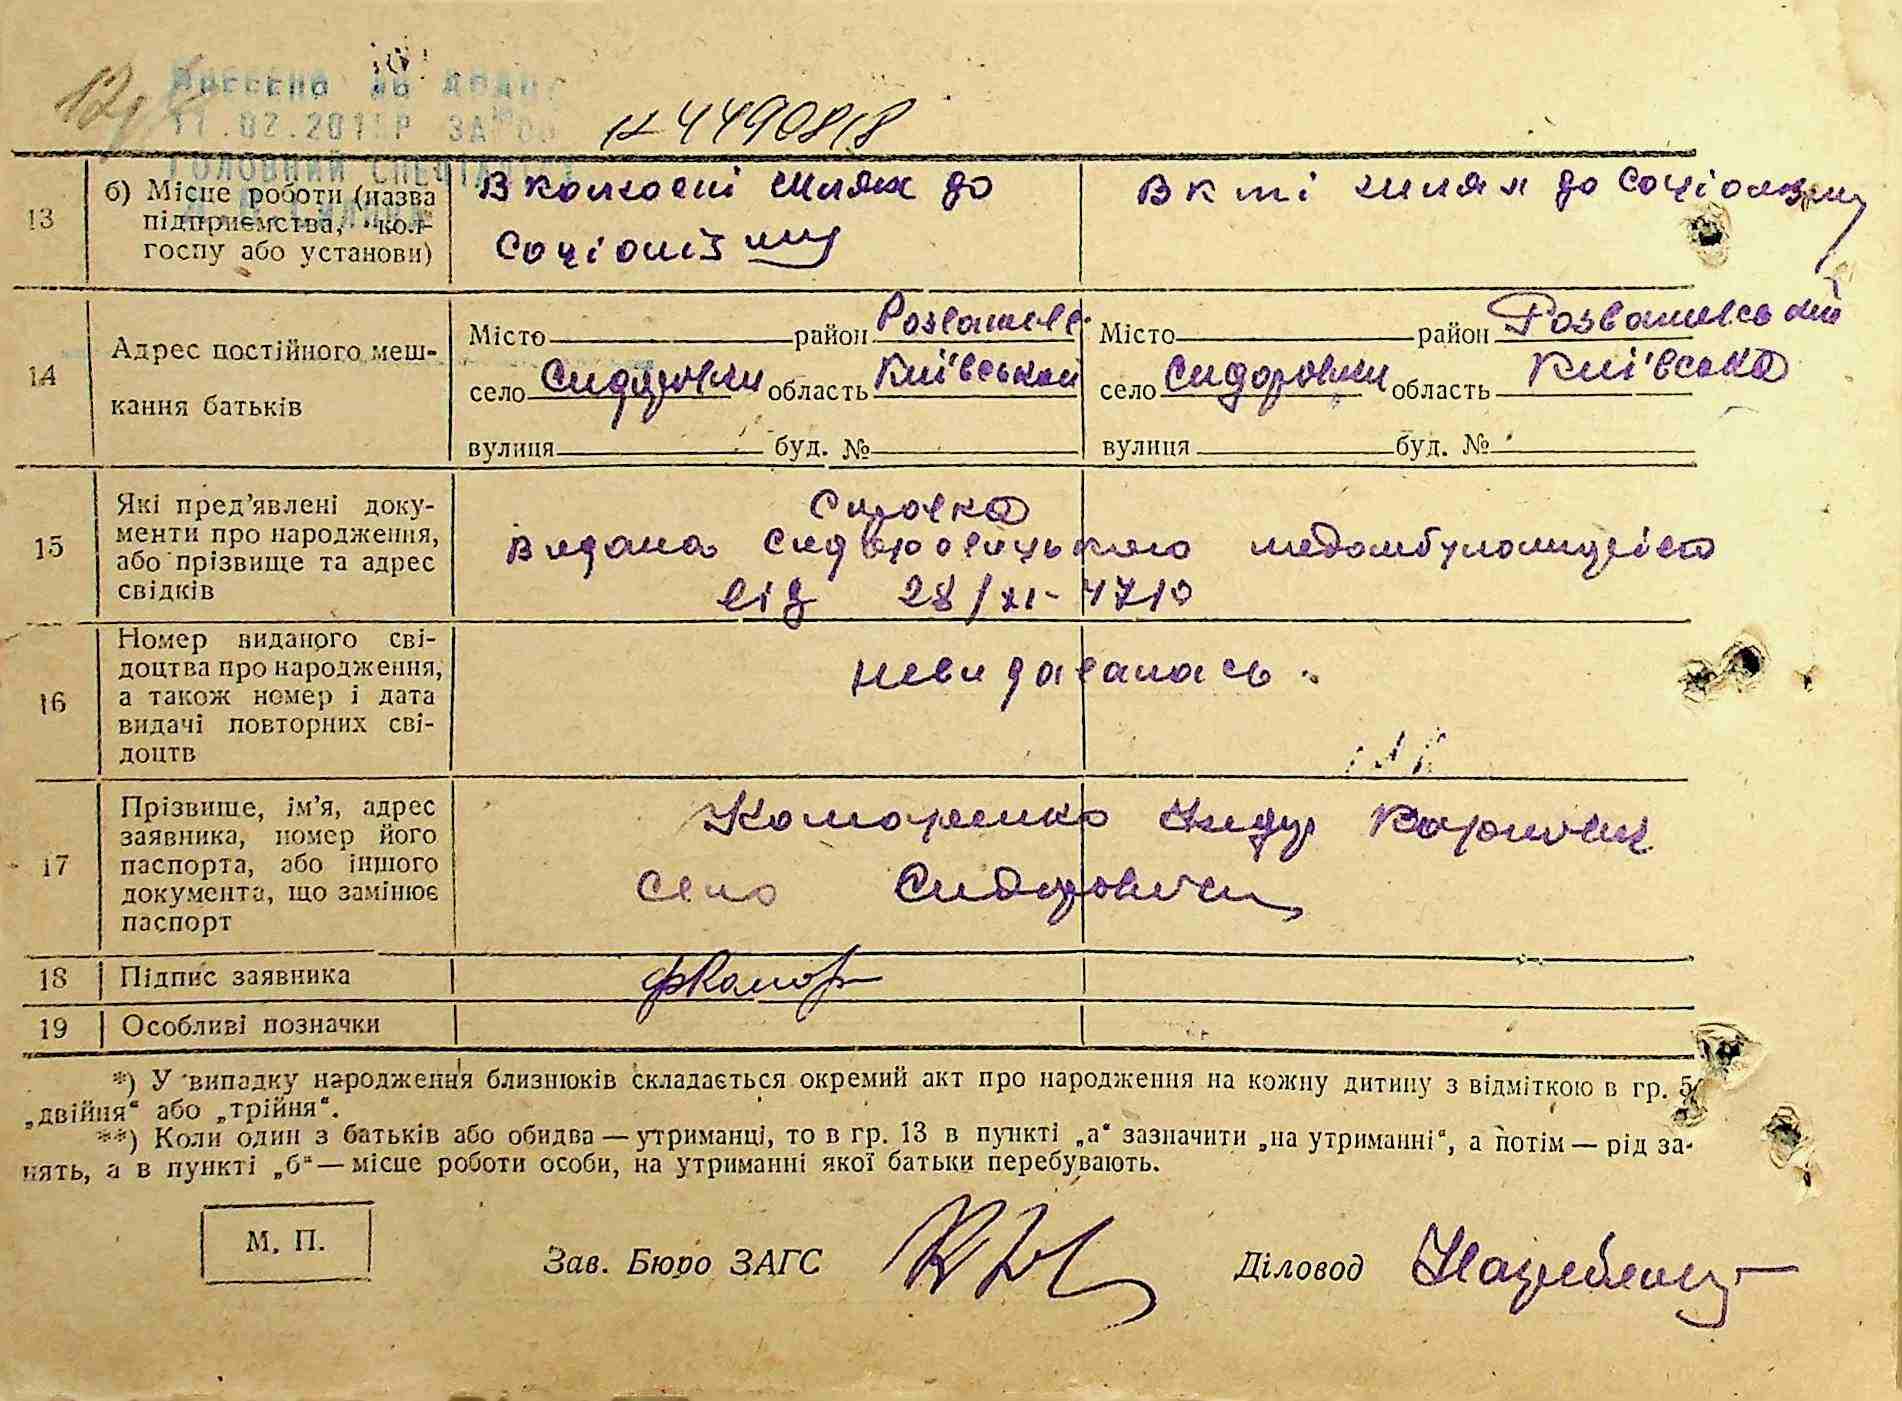 ВНЕСЕНО ДО
№ 4490818
13 б) Місце роботи (назва підприємства, кол-
госпу або установи)
В колгоспі шлях до
соціолізму
В к ті шлях до соціолізму
14 Адрес постійного меш-
кання батьків
Місто район Розваж
село Сидоровичи область Київській
вулиця буд. №
Місто район Розважевський
село Сидоровичи область Київська
вулиця буд. №
15 Які пред’явлені доку-
менти про народження,
або прізвище та адрес
свідків
Справка
Видана
від 28/XI-47 р
16 Номер виданого сві-
доцтва про народження,
а також номер і дата
видачі повторних сві-
доцтв
невидавалась.
17 Прізвище, ім’я, адрес
заявника, номер його
паспорта, або іншого
документа, що замінює
паспорт
Село Сидоровичи
18 Підпис заявника
19 Особливі позначки
*) У випадку народження близнюків складається окремий акт про народження на кожну дитину з відміткою в гр. 5
„двійня“ або „трійня“.
**) Коли один з батьків або обидва — утриманці, то в гр. 13 в пункті „а“ зазначити „на утриманні“, а потім — рід за-
нять, а в пункті „б“ — місце роботи особи, на утриманні якої батьки перебувають.
М. П.
Зав. Бюро ЗАГС
Діловод